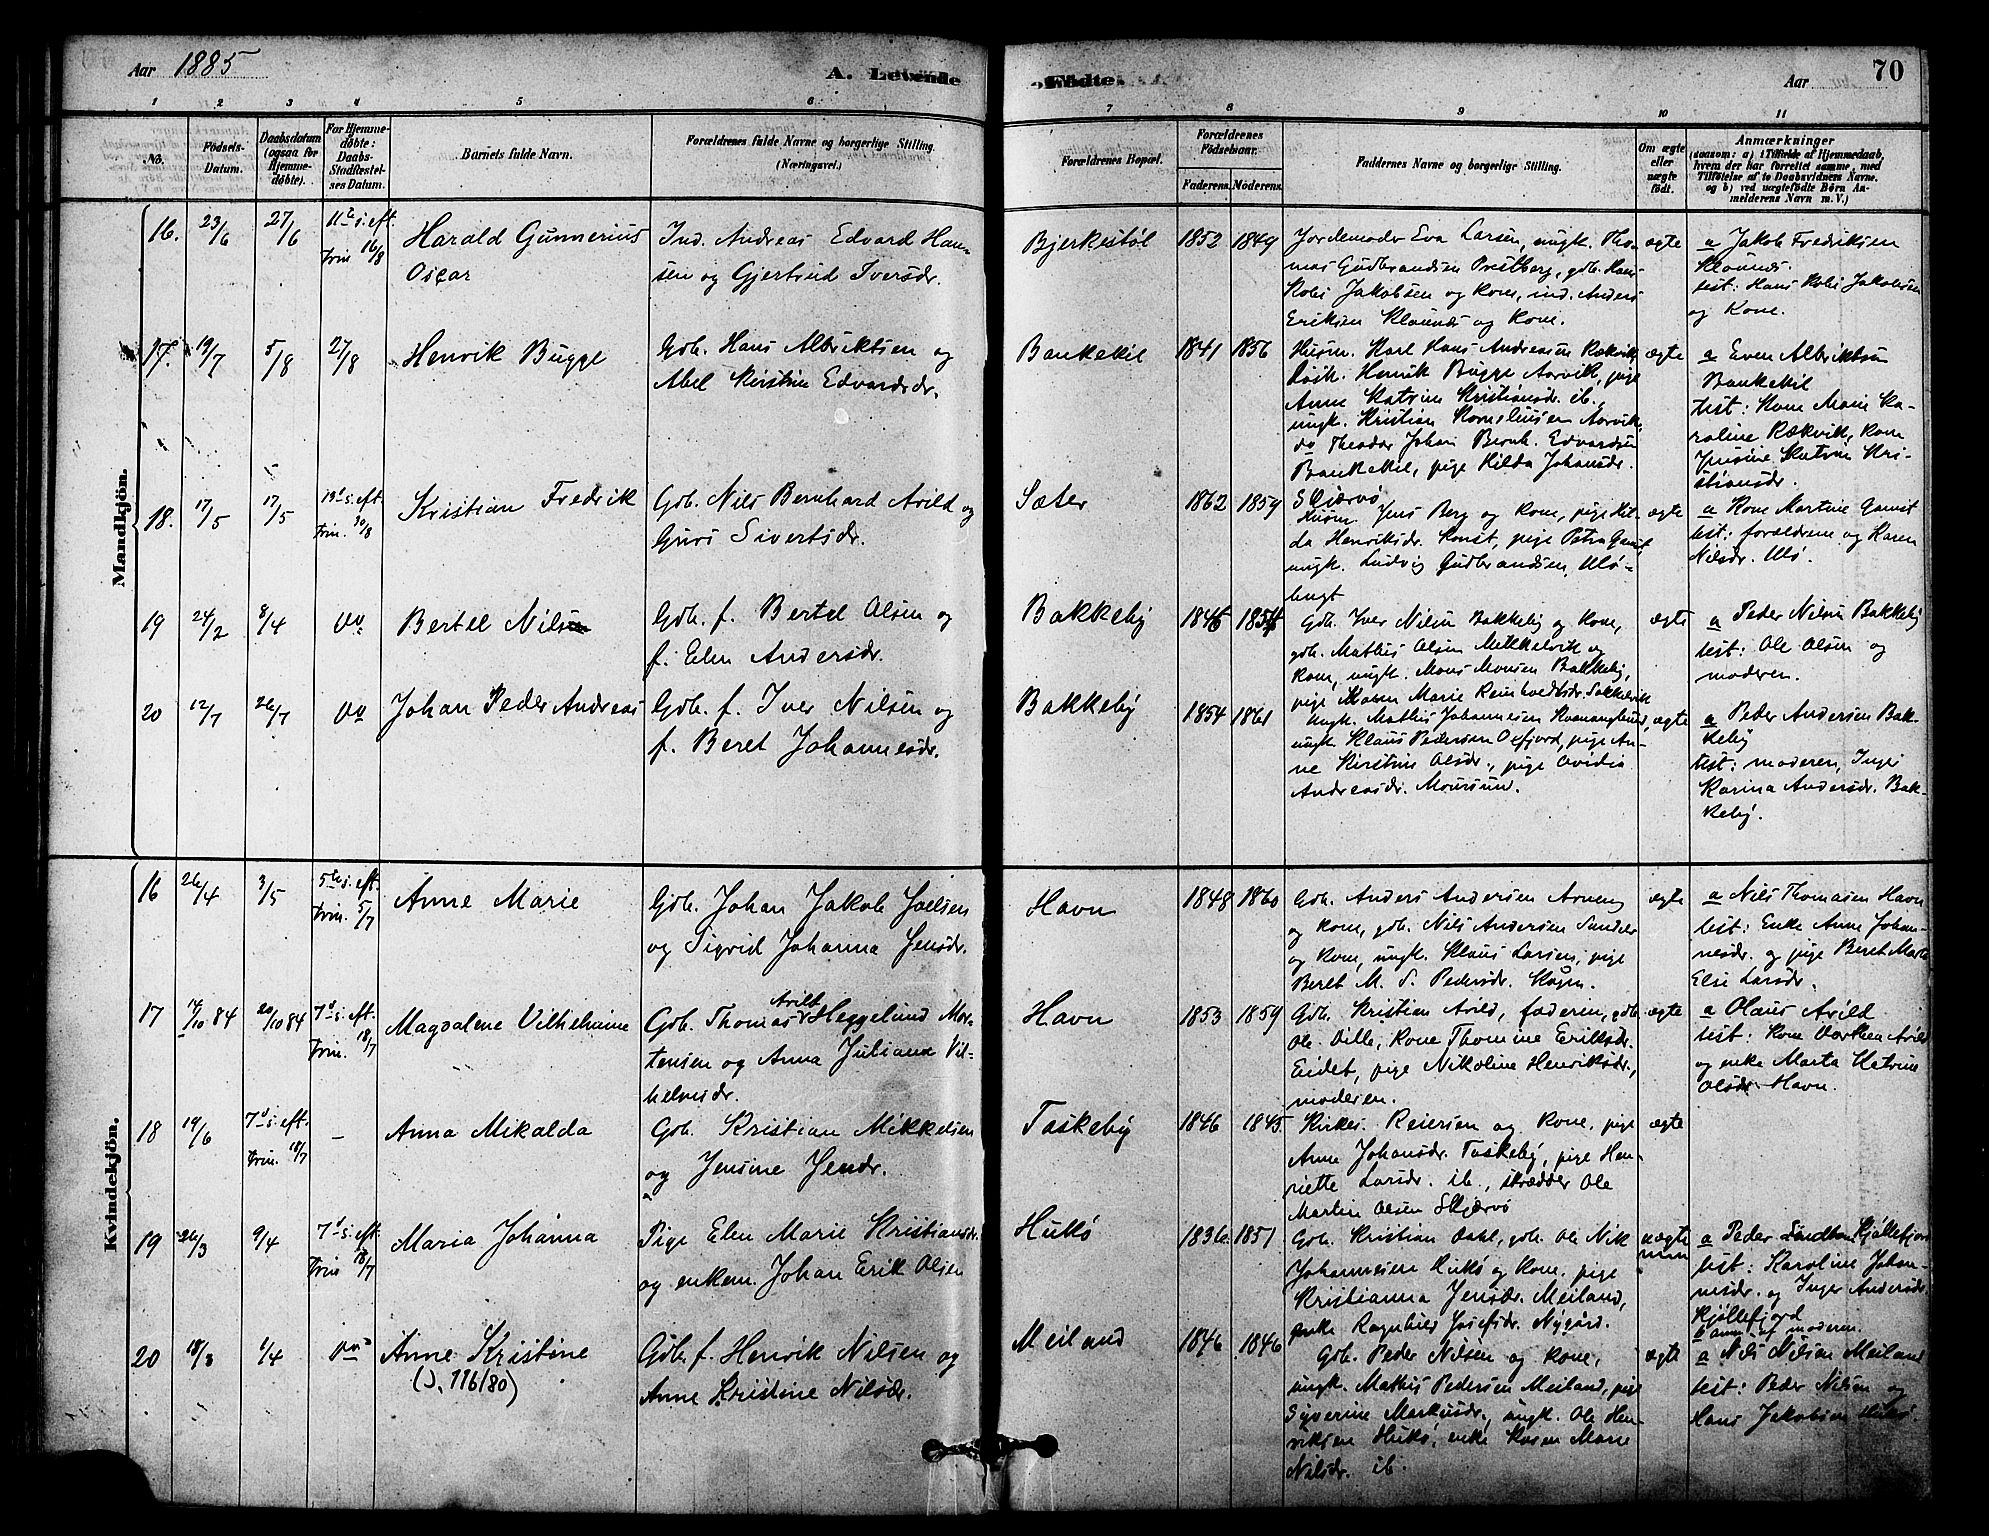 Aar 1885
A. Levende
Födte.
Aar
70
1 2 3 4 5 6 7 8 9 10 11
No.
Födsels-
Datum.
Daabsdatum
(ogsaa for
Hjemme-
döbte).
For Hjemme-
döbte:
Daabs-
Stadfæstel-
ses Datum.
Barnets fulde Navn.
Forældrenes fulde Navne og borgerlige Stilling.
(Næringsvei.)
Forældrenes Bopæl.
Forældrenes
Födselsaar.
Faderens. Moderens.
Faddernes Navne og borgerlige Stilling.
Om ægte
eller
uægte
födt.
Anmærkninger
(saasom: a) i Tilfælde af Hjemmedaab,
hvem der har forrettet samme, med
Tilföielse af to Daabsvidners Navne.
og b) ved uægtefödte Börn An-
melderens Navn m. V.)
Mandkjön.
16. 23/6 27/6 11te s. eft.
Trin 16/8
Harald Gunnerius
Oscar
Ind. Andreas Edvard Han-
sen og Gjertrud Iversdr.
Bjerkestøl
1852 1849
Jordemoder Eva Larsen, ungk. Tho-
mas Gudbrandsen Prestberg, gdb. Hans
Kobi Jakobsen og kone, ind. Anders
Eriksen Klounes og kone.
ægte
a Jakob Fredriksen
Klounes.
test: Hans Kobi Jakobsen
og Kone.
17. 19/7 5/8 27/8
Henrik Bugge
Gdb. Hans Albriktsen og
Abel Kirstine Edvardsdr.
Bankekil
1841 1856
Husm. Karl Hans Andreasen Rækvik
Løsk. Henrik Bugge Aarvik, pige
Anne Katrine Kristiansdr. ib.,
ungk. Kristian Korneliussen Aarvik,
do Theodor Johan Bernh. Edvardsen
Bankekil, pige Hilda Johansdr.
Skjærvø
ægte
a Even Albriktsen
Bankekil
test: Kone Marie Ka-
roline Rækvik, kone
Jensine Katrine Kri-
stiansdr.
18. 17/5 17/5 13d s. eft.
Trin. 30/8
Kristian Fredrik
Gdb. Nils Bernhard Arild og
Guro Sivertsdr.
Sæter
1862 1859
Husm. Jens Berg og kone, pige Hil-
da Henriksdr. Konst, pige Petra Gamst,
ungk. Ludvig Gudbrandsen, Ulø-
bugt
ægte
a Kone Martine Gamst
test: forældrene og Karen
Nilsdr. Ulø.
19 24/2 8/4 do
Bertel Nils
Gdb. f. Bertel Olsen og
f. Elen Andersdr.
Bakkeby
1845 1854
Gdb. Iver Nilsen Bakkeby og kone,
gdb. Mathis Olsen Mikkelvik og
kone, ungk. Mons Monsen Bakkeby,
pige Karen Marie Reinholdtsdr. Sakkelvik
ægte
a Peder Nilsen Bakkeby
test: Ole Olsen og
moderen.
20 12/7 26/7 do
Johan Peder Andreas
Gdb. f. Iver Nilsen og
f. Beret Johannesdr.
Bakkeby
1854 1861
ungk. Mathis Johannesen Kvænangbund,
ungk. Klaus Pedersen Oxfjord, pige An-
ne Kirstine Olsdr., pige Ovidia
Andreasdr. Moursund.
ægte
a Peder Andersen Bak-
keby
test: moderen, Inger
Karina Andersdr. Bak-
keby.
Kvindekjön.
16 26/4 3/5 5te s. eft.
Trin. 5/7
Anne Marie
Gdb. Johan Jakob Joelsen
og Sigrid Johanna Jensdr.
Havn
1848 1860
Gdb. Anders Andersen Arnøy
og kone, gdb. Nils Andersen Sandør
og kone, ungk. Klaus Larsen, pige
Beret M. S. Pedersdr. Kågen.
ægte
a Nils Thomasen Havn
test: Enke Anne Johan-
nesdr. og pige Beret Marta
Else Larsdr.
17 14/10 84 20/10 84 7d s. eft.
Trin. 18/7
Magdalene Vilhelmine
Gdb. Thomas Arild Heggelund Mor-
tensen og Anna Juliana Vil-
helmsdr.
Havn
1853 1859
Gdb. Kristian Arild, faderen, gdb.
Ole Dille, Kone Thomine Eriksdr.
Eidet, pige Nikoline Henriksdr.,
moderen.
ægte
a Olaus Arild
test: Kone Dorthea Arild
og enke Marta Katrine
Olsdr. Havn.
18 19/6 7d s. eft.
Trin. 18/7 –
Anna Mikalda
Gdb. Kristian Mikkelsen
og Jensine Jensdr.
Taskeby
1846 1845
Kirkes. Reiersen og kone, pige
Anne Johansdr. Taskeby, pige Hen-
riette Larsdr. ib., strædder Ole
Martin Olsen Skjærvø
ægte
19 26/3 9/4 7d s. eft.
Trin 18/7
Maria Johanna
Pige Elen Marie Kristiansdr.
og enkem. Johan Erik Olsen
Hukø
1836 1851
Gdb. Kristian Dahl, gdb. Ole Nik
Johannesen Hukø og kone, pige
Kristianna Jensdr. Meiland,
enke Ragnhild Josefsdr. Nygård.
uægte
a Peder Kjøllefjord
test: Karoline Johan-
nesdr. og Inger Andersdr.
Kjøllefjord
b anm. af moderen.
20 18/3 1/4 do
Anne Kristine
(J. 116/80)
Gdb. f. Henrik Nilsen og
Anne Kristine Nilsdr.
Meiland
1846 1846
Gdb. Peder Nilsen og kone,
ungk. Mathis Pedersen Meiland, pige
Syverine Markusdr., ungk. Ole Hen-
riksen Hukø, enke Karen Marie
Nilsdr. ib.
ægte
a Nils Nilsen Meiland
test: Peder Nilsen og
Hans Jakobsen Hukø.